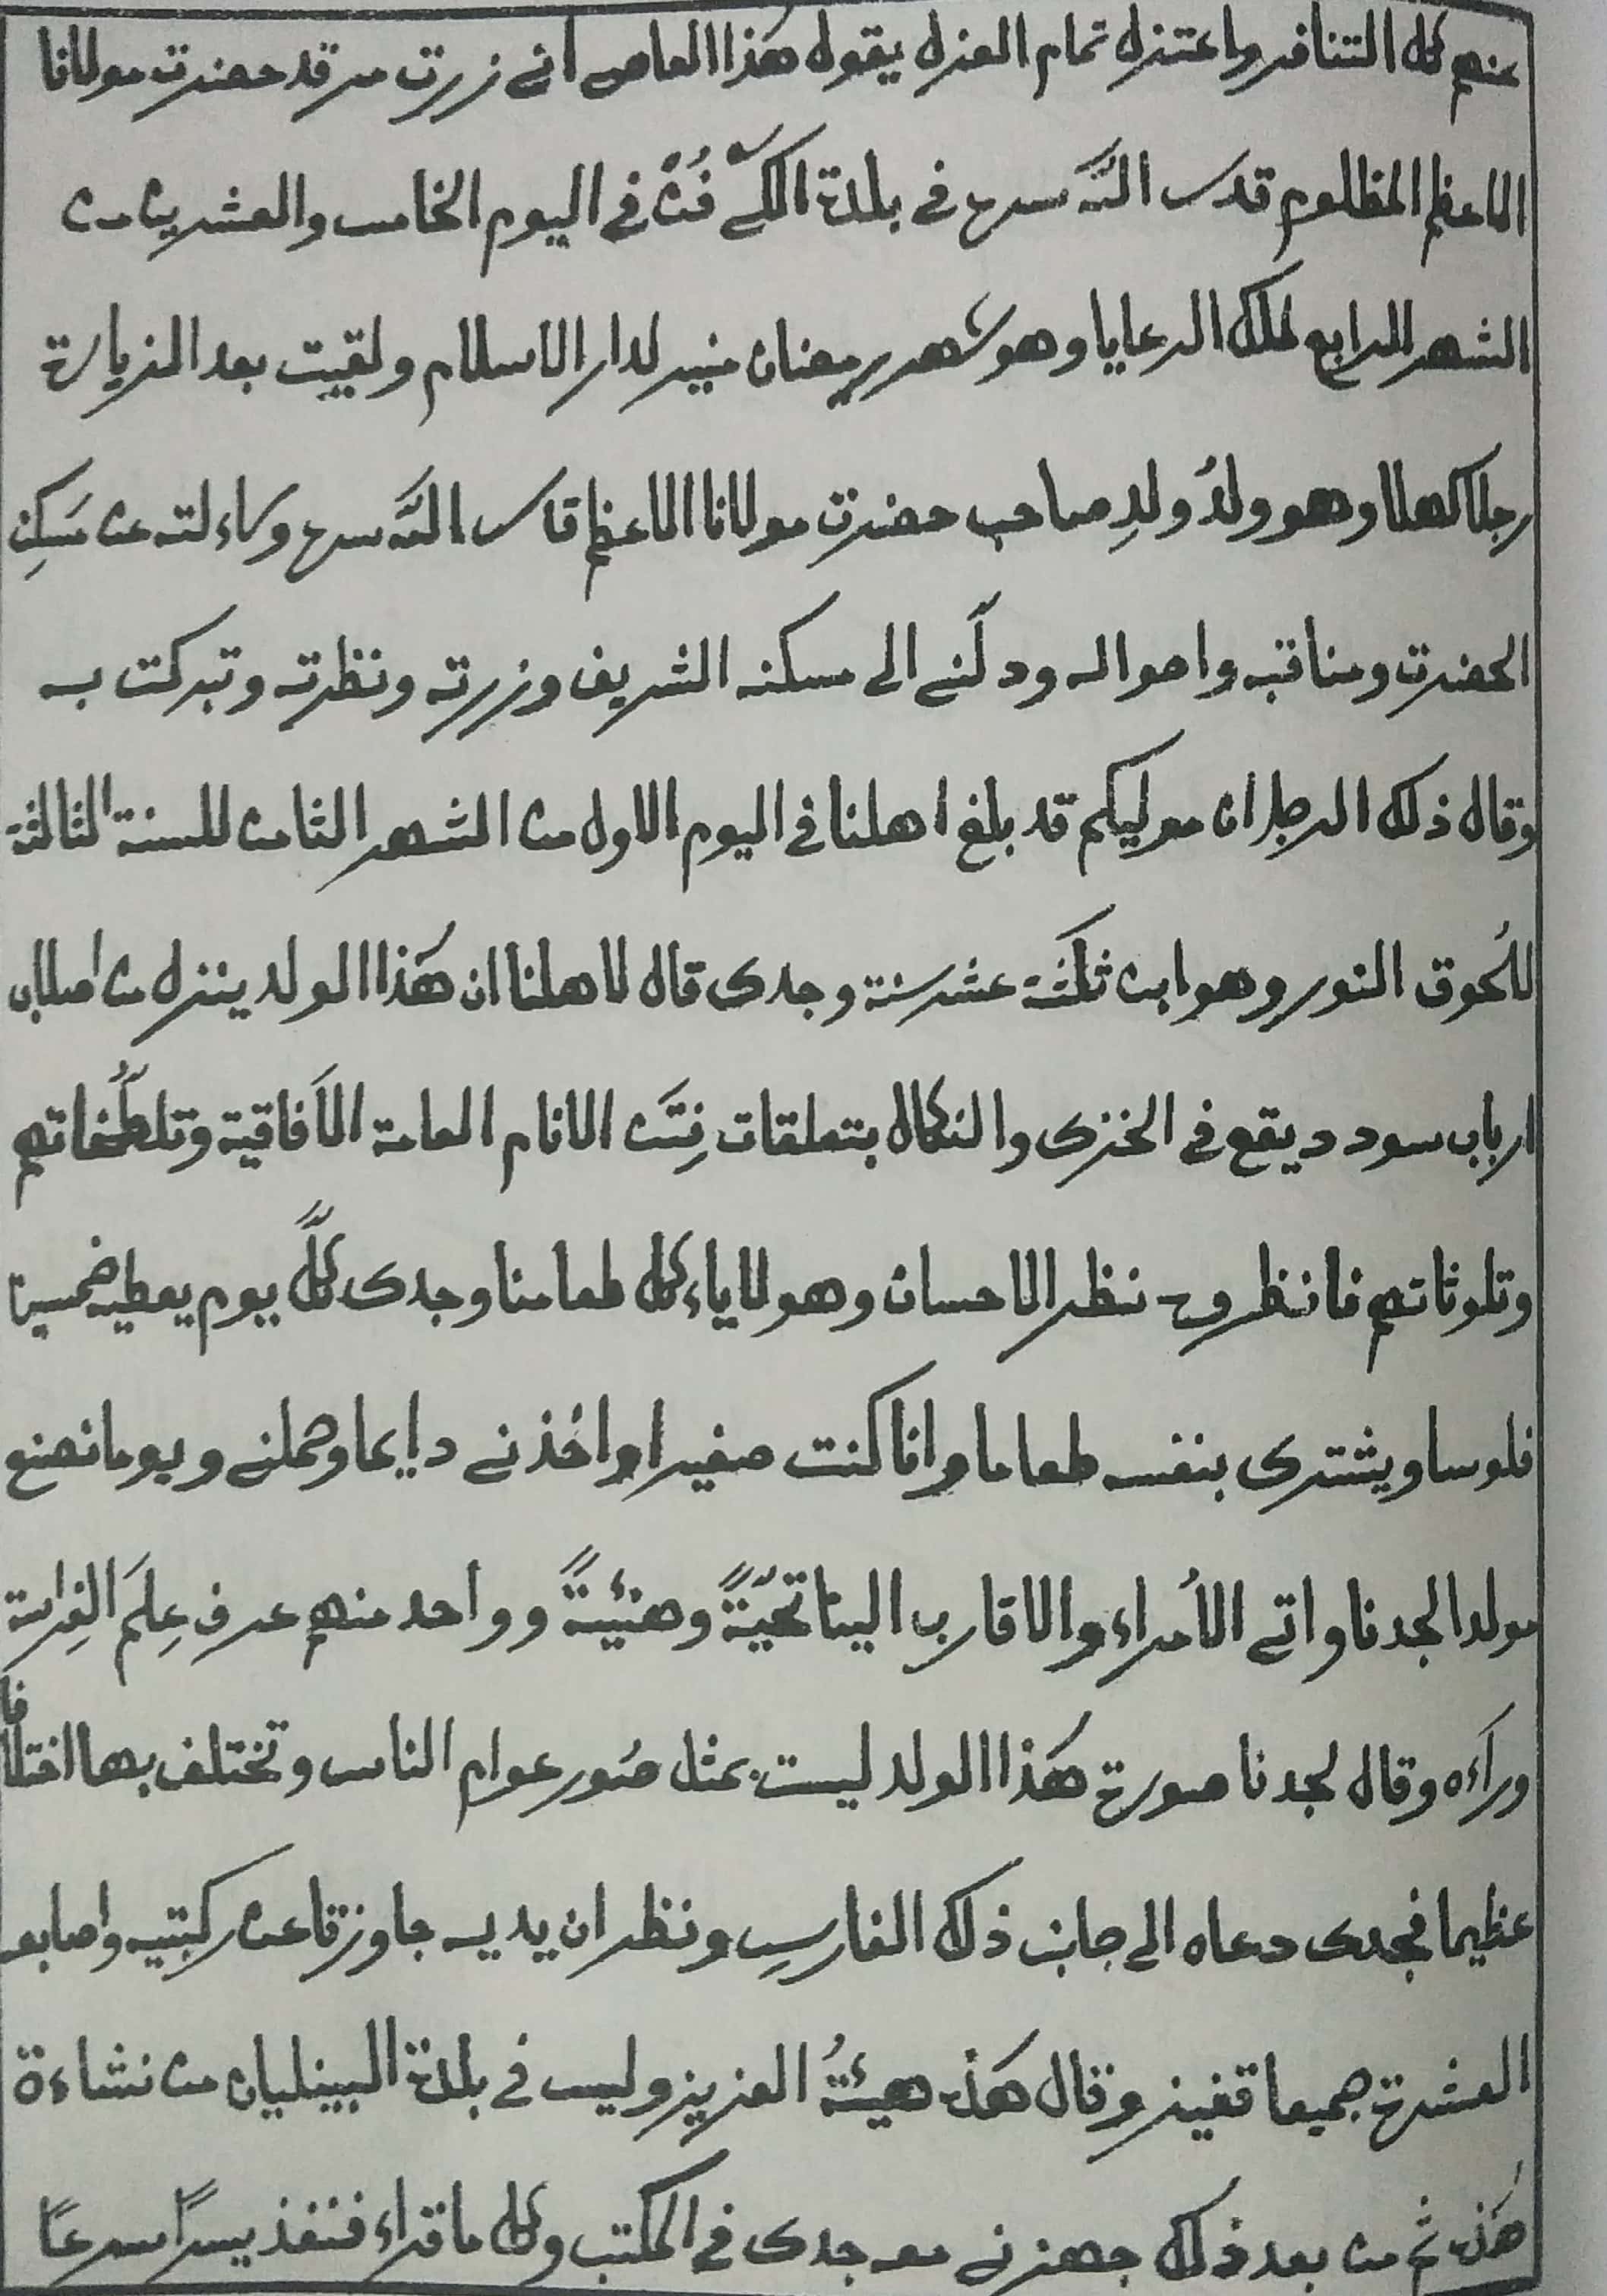 عنهم كل التنافر واعتزل تمام العزل يقول هذا العاصي انى زرت مرقد حضرت مولانا
الاعظم المظلوم قدس الله سره فى بلدة الكّے فُنْ فى اليوم الخامس والعشرين من
الشهر الرابع لملك الرعايا وهو شهر رمضان منير لدار الاسلام ولقيت بعد الزيارة
رجلا كهلا وهو ولدُ ولدِ صاحب حضرت مولانا الاعظم قدس الله سره وساءلته عن مَسكِن
الحضرت ومناقبه واحواله ودلّنى الى مسكنه الشريف وزرته ونظرته وتبركت به
وقال ذلك الرجل ان موليكم قد بلغ اهلنا فى اليوم الاول من الشهر الثامن للسنة الثالثة
للُحوق النور وهو ابن ثلثة عشر سنة وجدى قال لاهلنا ان هَذا الولد ينزل من اصلاب
ارباب سودد يقع فى الخزى والنكال بتعلقات فِتَن الانام العامة الآفاقية وتلطّخاتهم
وتلوثاتهم فانظروه نظر الاحسان وهو لا ياءكل طعامنا وجدى كلَّ يوم يعطيه خمسين
فلوسا ويشترى بنفسه طعاما وانا كنت صغيرا واخُذنى دايما وحملنى ويوما نصنع
مولدا لجدنا واتى الأمراء والاقارب الينا تحيّةً وهنيئةً وواحد منهم عرف عِلمَ الفِراسة
ورآءه وقال لجدنا صورة هَذا الولد ليست بمثل صُور عوام الناس وتختلف بها اختلافا
عظيما فجدى دعاه الى جانب ذلك الفارسِ ونظر ان يديه جاوزتا عن ركبتيه واصابعه
العشرة جميعا قفيز وقال هَذه هيئةُ العزيز وليس فى بلدة البينليان من نشاءة
هَذه ثم من بعد ذلك جهزنى معه جدى فى المكتب وكل ما قراء فنفذ يسرًا سرعًا